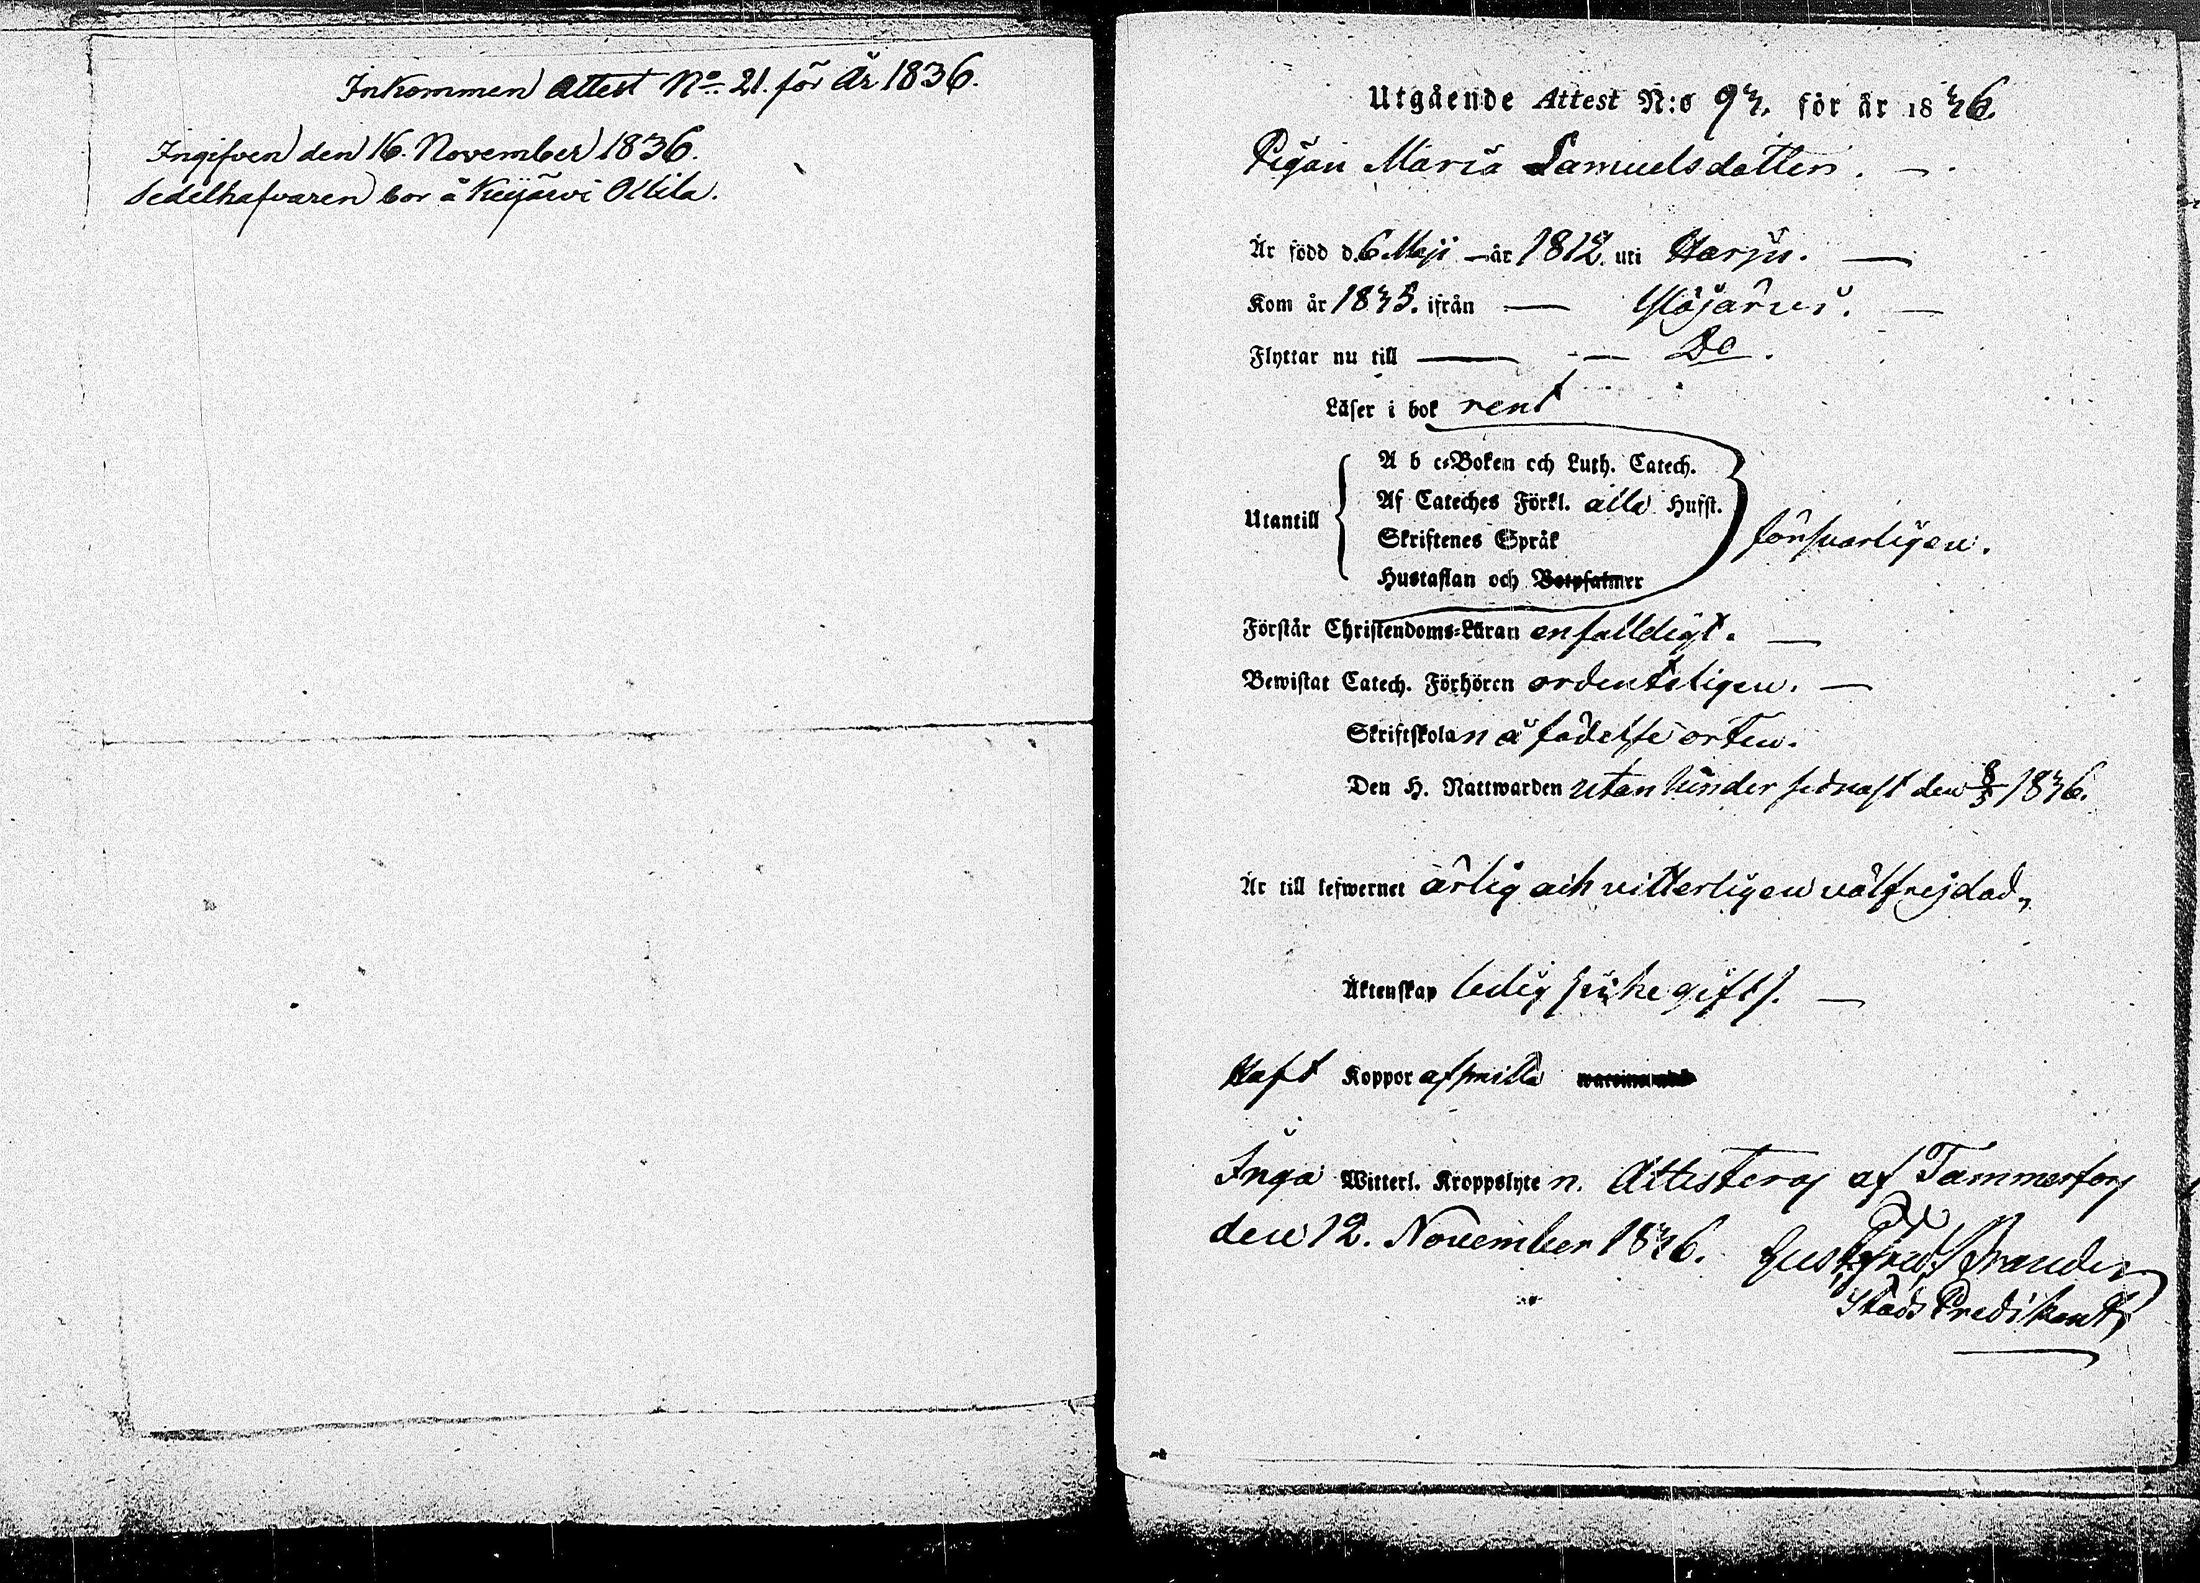 Inkommen Attest No. 21. för År 1836.
Ingifven den 16. November 1836.
Sedelhafvaren bor å Keijärvi Ollila.
Utgående Attest N:o 93. för år 1836.
Pigan Maria Samuelsdotter. —
Är född d. 6 Maji — år 1812. uti Harju. —
Kom år 1835. ifrån — Ylöjärvi. —
Flyttar nu till — — Do.
Läser i bok rent
A b c-Boken och Luth. Catech.
Af Cateches Förkl. alla Hufst.
Utantill
Skriftenes Språk
försvarligen.
Hustaflan och Botpsalmer
Förstår Christendoms-Läran enfalldigt. —
Bewistat Catech. Förhören ordenteligen. —
Skriftskolan å födelse orten.
Den H. Nattwarden utan hinder sednast den 8/5 1836.
Är till lefwernet ärlig och vitterligen välfrejdad,
Äktenskap ledig för ike gift. —
Haft Koppor af smitta
Inga Witterl. Kroppslyten. Attesteras af Tammerfors
den 12. November 1836. Gust. Fred. Brander
Stads Predikant